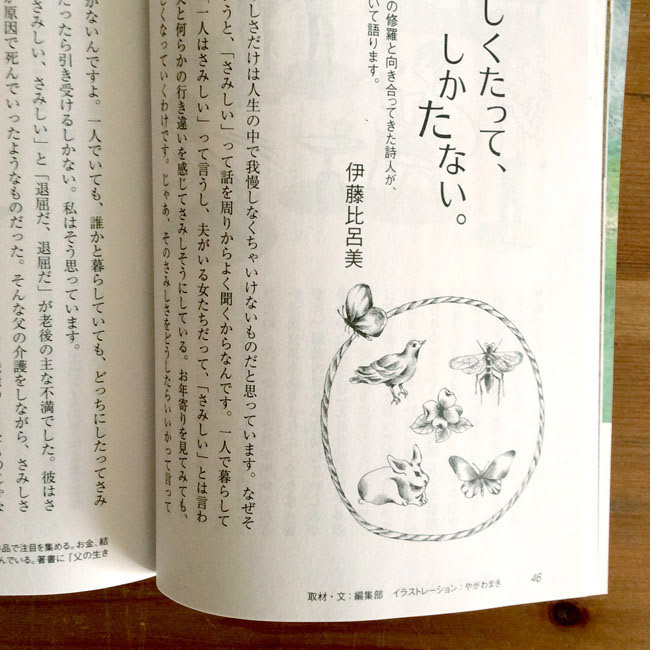 しくたって、
しかたない。
の修羅と向き合ってきた詩人が、
いて語ります。
伊藤比呂美
しさだけは人生の中で我慢しなくちゃいけないものだと思っています。なぜそ
うと、「さみしい」って話を周りからよく聞くからなんです。一人で暮らして
「人はさみしい」って言うし、夫がいる女たちだって、「さみしい」とは言わ
夫と何らかの行き違いを感じてさみしそうにしている。お年寄りを見てみても、
しくなっていくわけです。じゃあ、そのさみしさをどうしたらいいかって言って
取材・文：編集部 イラストレーション：やがわまき
46
がないんですよ。一人でいても、誰かと暮らしていても、どっちにしたってさみ
だったら引き受けるしかない。私はそう思っています。
さみしい、さみしい」と「退屈だ、退屈だ」が老後の主な不満でした。彼はさ
が原因で死んでいったようなものだった。そんな父の介護をしながら、さみしさ
品で注目を集める。お金、結
んでいる。著書に『父の生き